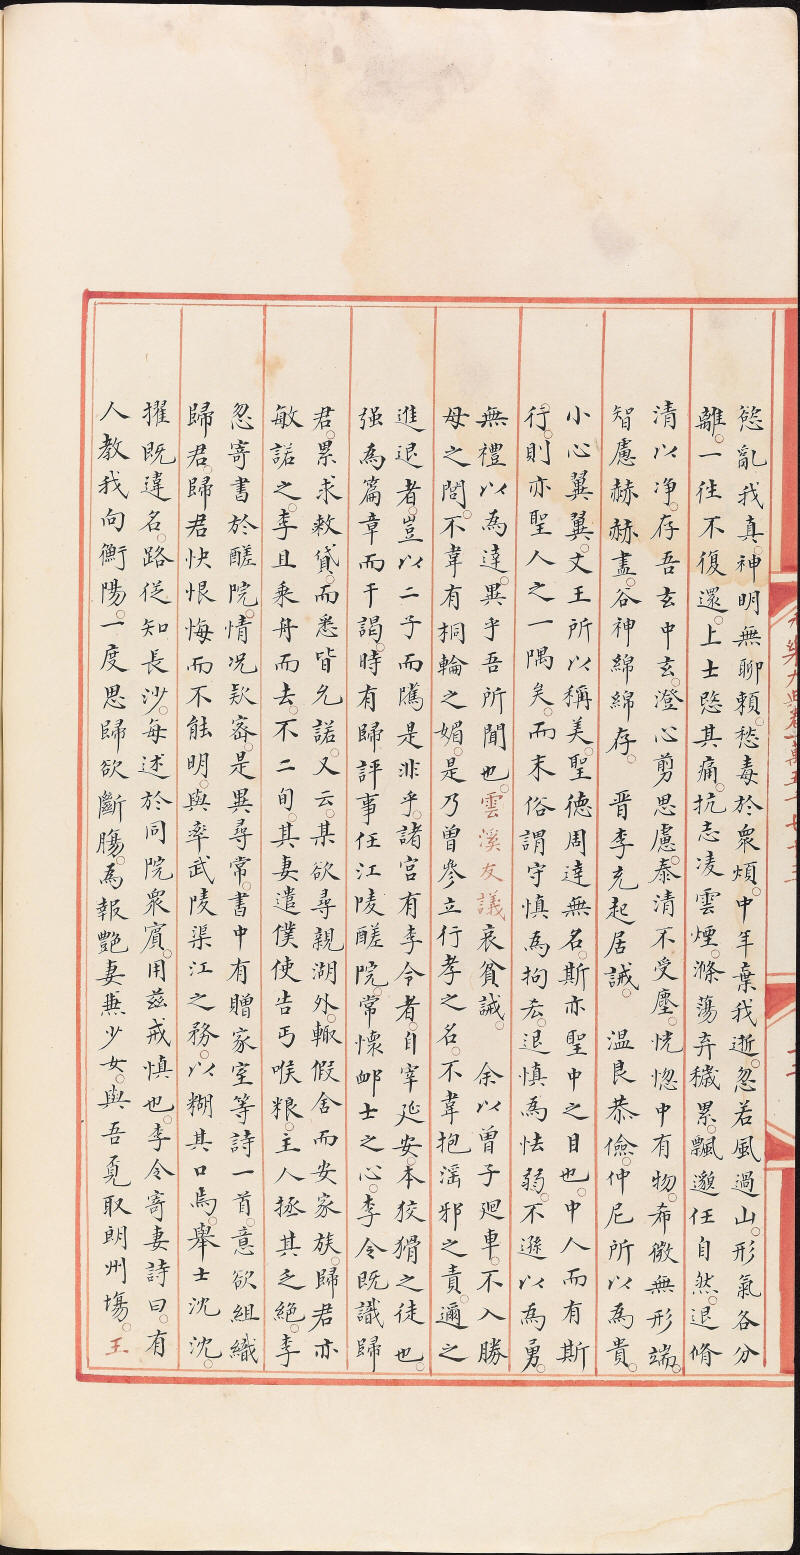 慾亂我真神明無聊賴愁毒於衆煩中年棄我逝忽若風過山形氣各分
離一往不復還上士愍其痛抗志凌雲煙滌蕩弃穢累飄邈任自然退脩
清以净存吾玄中玄澄心剪思慮泰清不受塵恍惚中有物希微無形端
智慮赫赫盡谷神綿綿存 晋李充起居誡 溫良恭儉仲尼所以為貴
小心翼翼文王所以稱美聖德周達無名斯亦聖中之目也中人而有斯
行則亦聖人之一隅矣而末俗謂守慎為拘𠫤退慎為怯弱不遜以為勇
無禮以為達異乎吾所聞也雲溪友議哀貧誡 余以曽子廻車不入勝
母之閭不韋有桐輪之媚是乃曽參立行孝之名不韋抱滛邪之責邇之
進退者豈以二子而隲是非乎諸宮有李令者自宰延安本狡猾之徒也
强為篇章而干謁時有歸評事任江陵醝院常懷䘏士之心李令既識歸
君累求救貸而悉皆允諾又云某欲尋親湖外輙假舍而安家族歸君亦
敏諾之李且乘舟而去不二旬其妻遣僕使告丐喉粮主人拯其乏絶李
忽寄書於醝院情况欵宻是異尋常書中有贈家室等詩一首意欲組織
歸君歸君怏恨悔而不能明與率武陵渠江之務以糊其口焉舉士沈沈
擢既違名路従知長沙每述於同院衆賓用兹戒慎也李令寄妻詩曰有
人教我向衡陽一度思歸欲斷腸為報艶妻𠔥少女與吾覔取朗州塲王